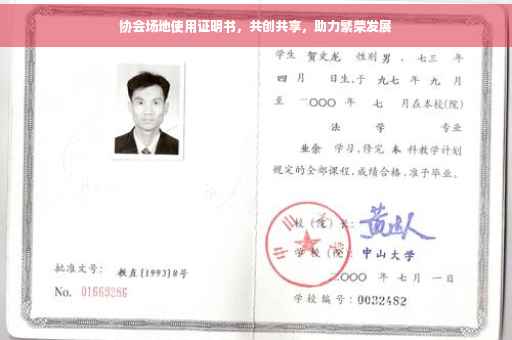 协会场地使用证明书，共创共享，助力繁荣发展
学生 贺文龙 性别 男 、七三 年
四 月 日生，于 九七 年 九 月
至 二〇〇〇 年 七 月在本校(院)
法 学 专业
业余 学习，修完 本 科教学计划
规定的全部课程，成绩合格，准予毕业。
校 (院) 长:
学 校 (院): 中山大学
批准文号: 教直[1993]8号
二〇〇〇 年 七 月 一日
No. 01669286
学校编号: 0032482